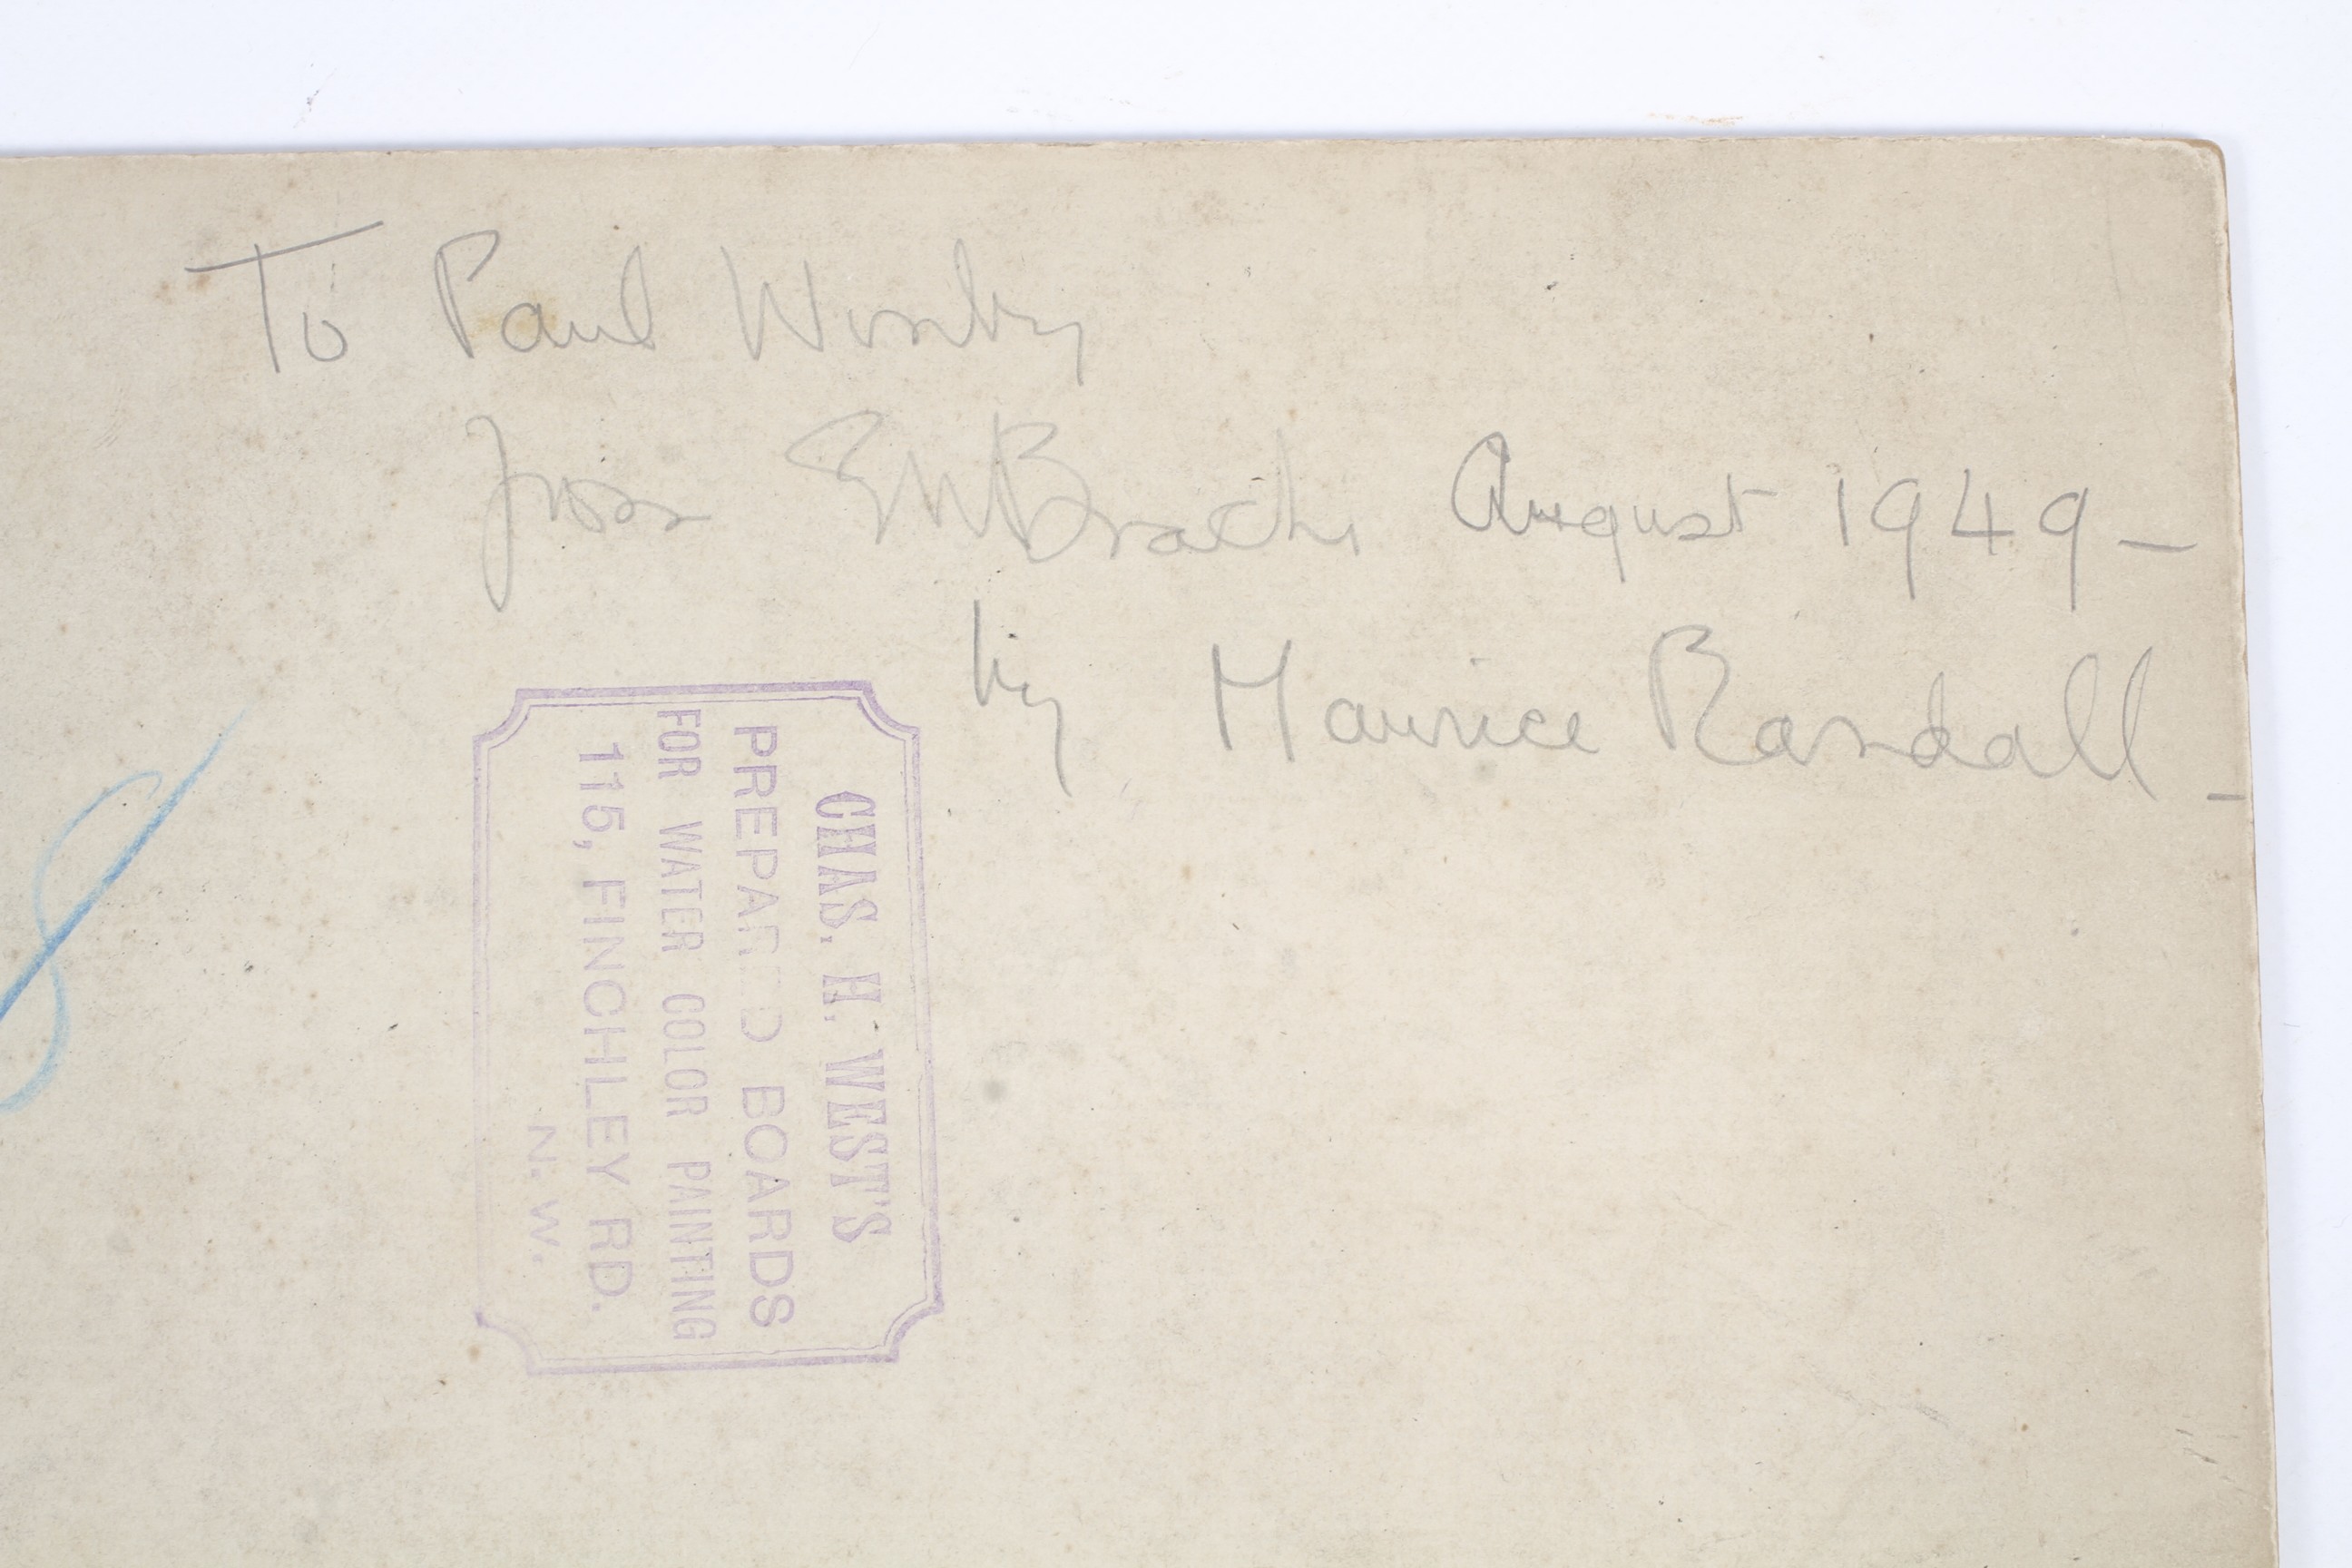 To Paul
from August 1949 –
by Maurice Randall –
CHAS. H. WEST'S
PREPARED BOARDS
FOR WATER COLOR PAINTING
115, FINCHLEY RD.
N. W.
8